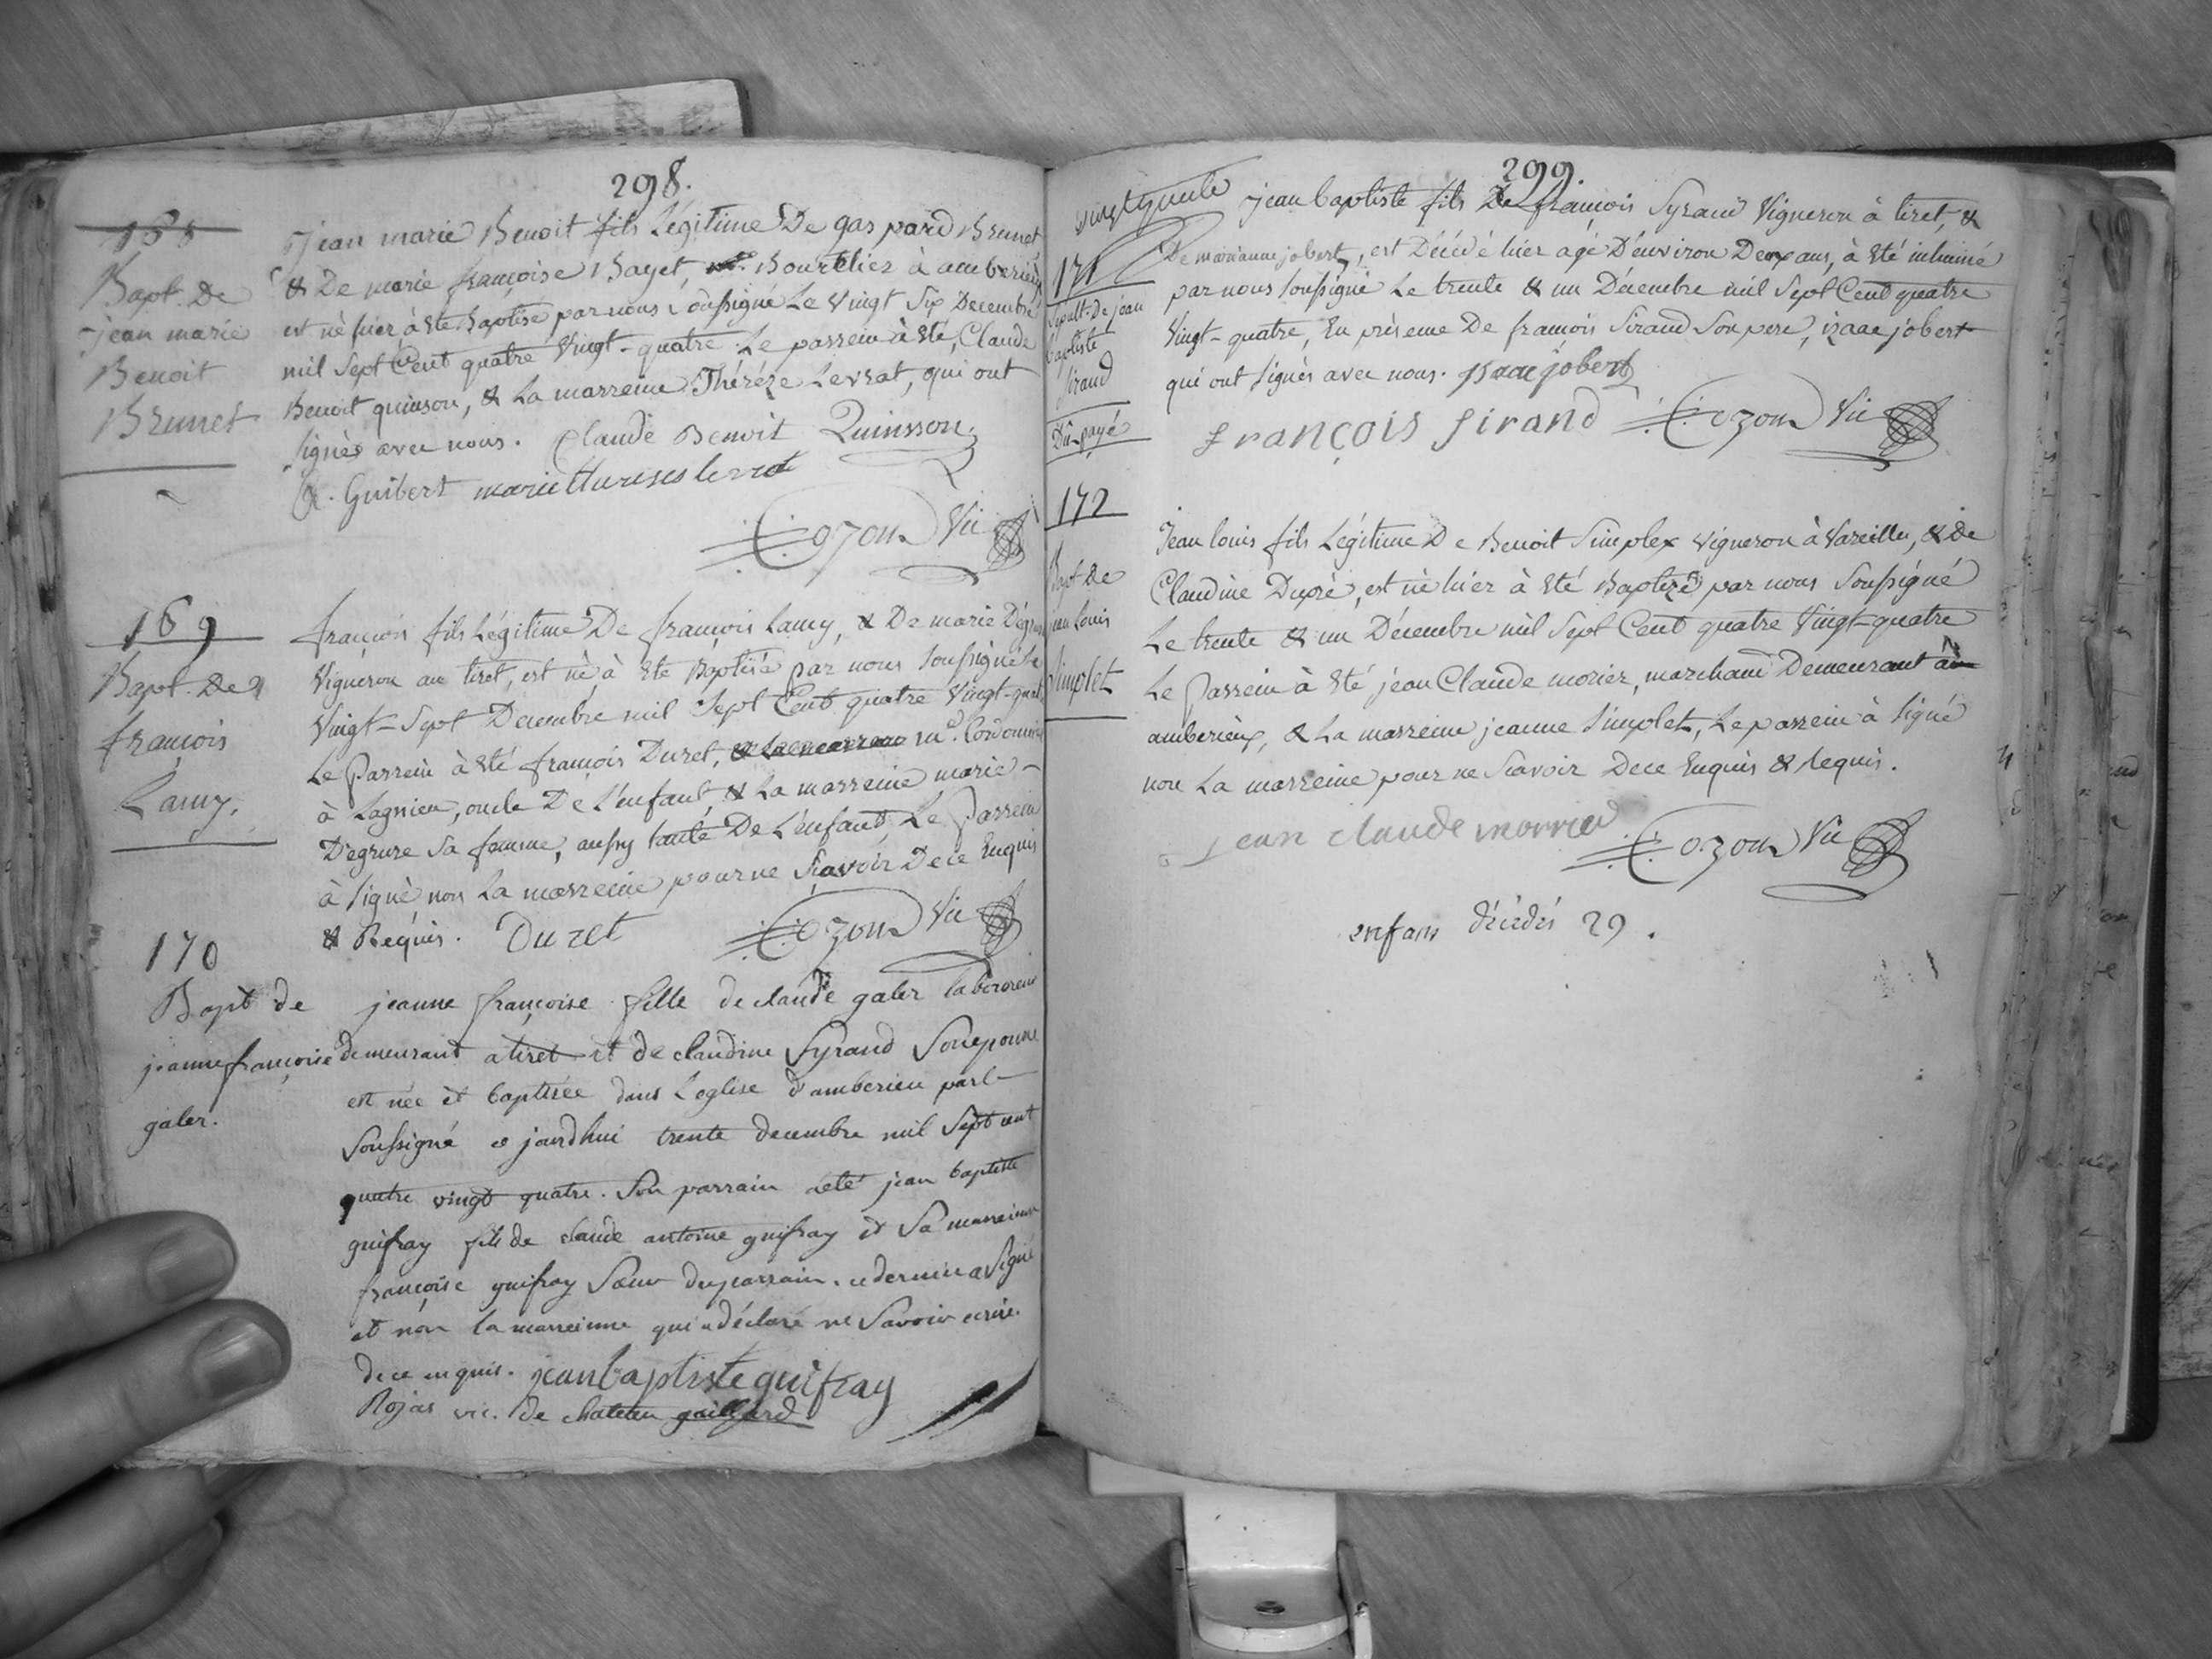 298.
168
Bapt. De
jean marie
Benoit
Brunet
jean marie Benoit fils Légitime De gaspard Brunet
& De marie françoise Bayet, Bourelier à amberieux
est né hier, à été Baptisé par nous soussigné Le Vingt Six Decembre
mil Sept Cent quatre Vingt-quatre. Le parrein à été, Claude
Benoit quinson, & La marreine Théréze Levrat, qui ont
signés avec nous. Claude Benoit Quinsson.
Guibert
Cozon Vic
169
Bapt. De
françois
Lamy.
françois fils Légitime De françois Lamy, & De marie
Vigneron au tiret, est né à été Baptisé par nous soussigné Le
Vingt-Sept Decembre mil Sept Cent quatre Vingt-quatre
Le Parrein à été françois Duret, & la marreine md. Cordonnier
à Lagnieu, oncle De L'enfant, & La marreine marie-
Degrure sa femme, aussy tante De L'enfant, Le Parrein
à signé non La marreine pour ne Sçavoir De ce Enquis
& Requis. Duret Cozon Vic
170
Bapt de
jeanne françoise
galer.
jeanne françoise fille de claude galer laboureur
demeurant a tiret et de claudine Syrand Son epouse
est née et baptisée dans Leglise d'amberieu par le
Soussigné ce jourdhui trente decembre mil Sept cent
quatre vingt quatre. Son parrain a eté jean baptiste
guifray fils de claude antoine guifray et Sa marreinne
françoise guifray Sœur du parrain. ce dernier a Signé
et non la marreinne qui a déclaré ne Savoir ecrire.
de ce enquis. jean baptiste guifray
Rojas vic. de chateau gaillard
299.
171
Sepult. De jean
baptiste
Sirand
Dû payé
jean baptiste fils De françois Syrand Vigneron à tiret, &
De marianne jobert, est Décédé hier agé D'environ Deux ans, à été inhumé
par nous soussigné Le trente & un Décembre mil Sept Cent quatre
Vingt-quatre, En présence De françois Sirand Son pere, izaac jobert
qui ont signés avec nous. isaac jobert
françois sirand Cozon Vic
172
Bapt. De
jean louis
Simplet
Jean louis fils Légitime De Benoit Simplex Vigneron à Vareilles, & De
Claudine Dupré, est né hier à été Baptizé par nous Soussigné
Le trente & un Décembre mil Sept Cent quatre Vingt-quatre
Le Parrein à été jean Claude morier, marchand Demeurant à
amberieux, & La marreine jeanne Simplet, Le parrein à signé
non La marreine pour ne Scavoir De ce Enquis & requis.
jean claude morrier
Cozon Vic
enfans décédés 29.